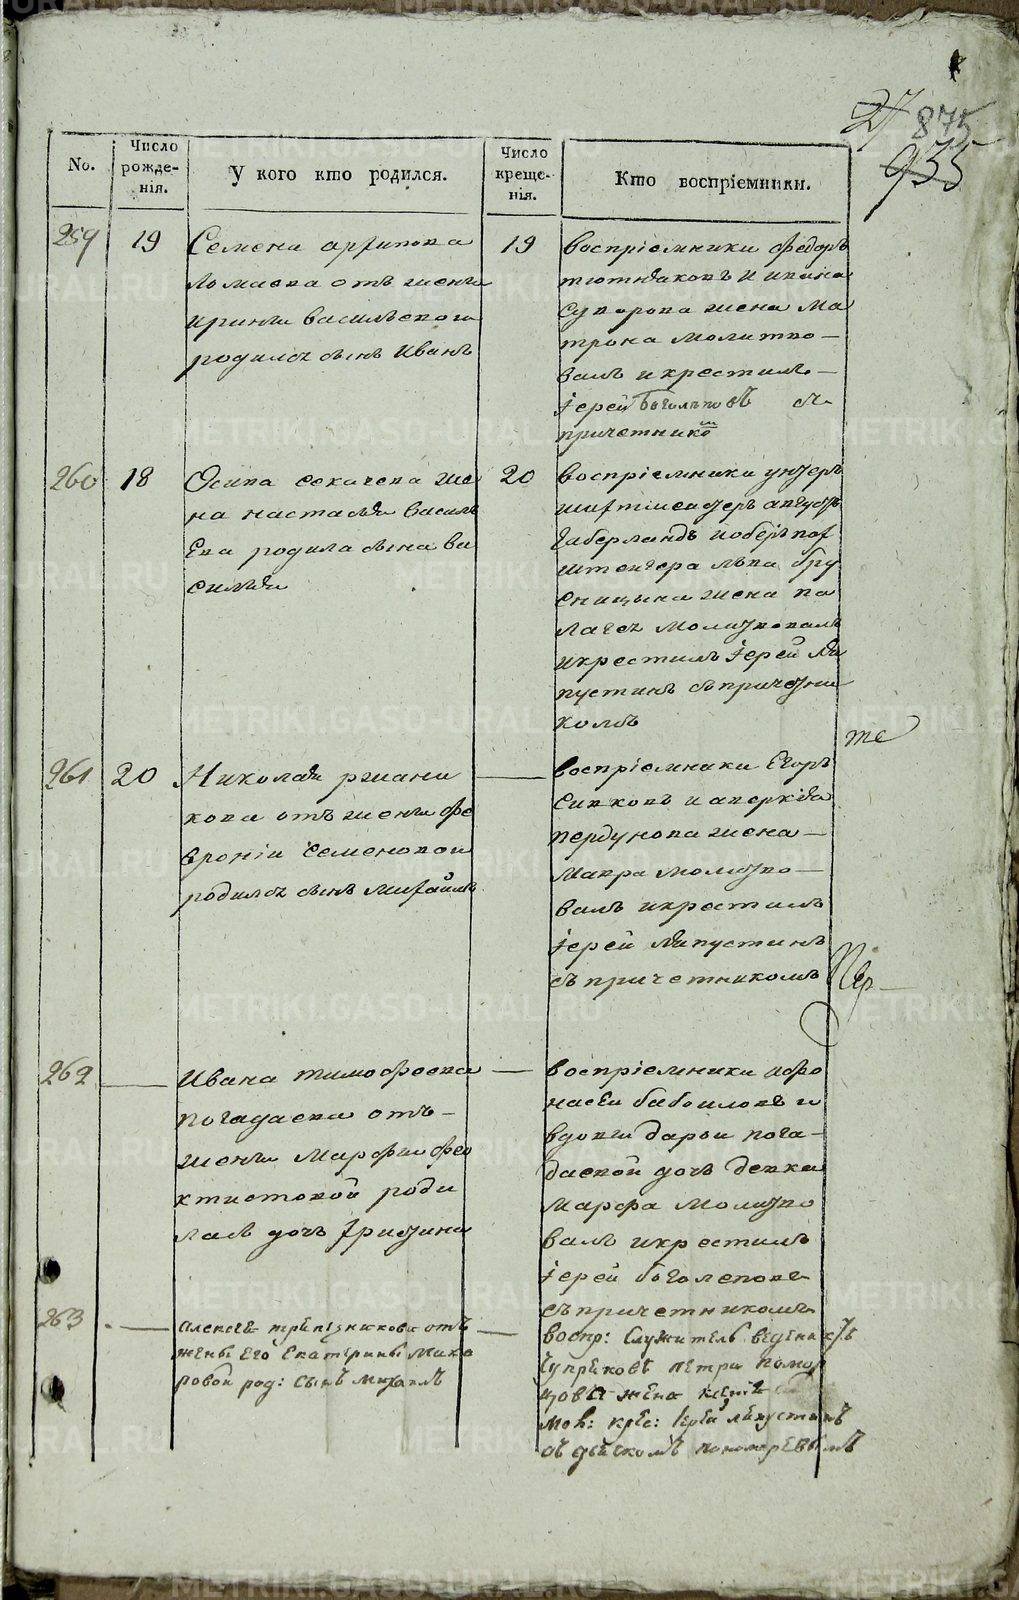 27 875
935
No.
Число рожде-нія.
У кого кто родился.
Число креще-нія.
Кто воспріемники.
259 19
Семена архипова
Ломаева отъ жены
ирины васильевой
родился сынъ Иванъ
19
воспріемники федоръ
тютняковъ и ивана
суворова жена Ма
трона молитво—
валъ икрестилъ—
іерей Боголеповъ съ
причетникомъ
260 18
Осипа секачева же
на насталья Василь
ева родила сына ва
силья
20
воспріемники унтеръ
шихтмейстеръ августъ
габерландъ
штейгера льва бру
сницына жена па
лагея молитвовалъ
икрестилъ іерей ля
пустинъ съпричетни
комъ
261 20
Николая
кова отъ жены фе
вроніи семеновой
родился сынъ михайлъ
—
воспріемники Егоръ
сивковъ и аверкія
пердунова жена—
мавра молитво—
валъ икрестилъ
іерей ляпустинъ
съпричетникомъ
те
262 —
Ивана тимофеева
погадаева отъ—
жены Марфы фео
ктистовой роди
лась дочь
—
воспріемники афо
насей бабоиловъ и
вдовы дарьи пога—
даевой дочь девка
марфа молитво
валъ икрестилъ
іерей боголеповъ
съпричетникомъ
263 —
алексея трепезникова отъ
жены его Екатерины мака
ровой род: сынъ михаилъ
—
воспр: служитель
чупряковъ петра помор
цова жена
мов: крес: іерей ляпустинъ
съ дьячкомъ пономаревымъ